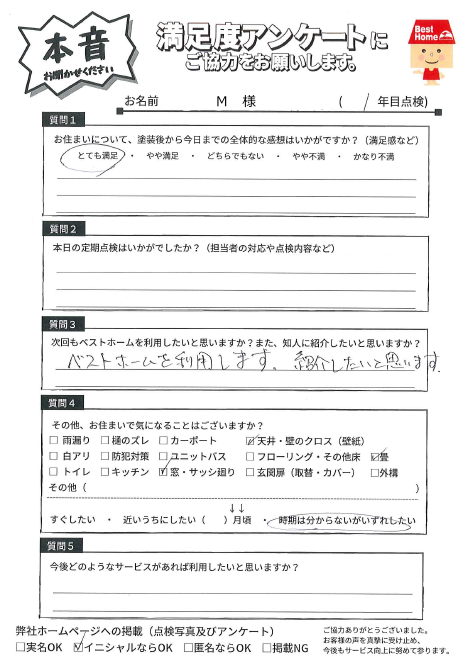 本音
お聞かせください
満足度アンケートに
ご協力をお願いします。
Best
Home
お名前 M 様 ( / 年目点検)
質問1
お住まいについて、塗装後から今日までの全体的な感想はいかがですか?(満足感など)
とても満足 ・ やや満足 ・ どちらでもない ・ やや不満 ・ かなり不満
質問2
本日の定期点検はいかがでしたか?(担当者の対応や点検内容など)
質問3
次回もベストホームを利用したいと思いますか?また、知人に紹介したいと思いますか?
ベストホームを利用します。紹介したいと思います。
質問4
その他、お住まいで気になることはございますか?
□雨漏り □樋のズレ □カーポート ☑天井・壁のクロス(壁紙)
□白アリ □防犯対策 □ユニットバス □フローリング・その他床 ☑畳
□トイレ □キッチン ☑窓・サッシ廻り □玄関扉(取替・カバー) □外構
その他( )
↓↓
すぐしたい ・ 近いうちにしたい( )月頃 ・ 時期は分からないがいずれしたい
質問5
今後どのようなサービスがあれば利用したいと思いますか?
弊社ホームページへの掲載(点検写真及びアンケート)
□実名OK ☑イニシャルならOK □匿名ならOK □掲載NG
ご協力ありがとうございました。
お客様の声を真摯に受け止め、
今後もサービス向上に努めて参ります。